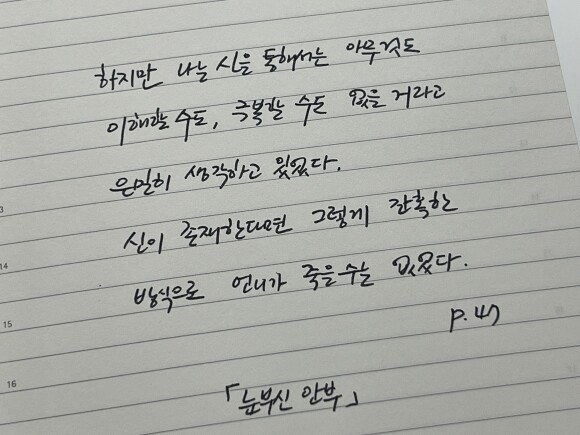 하지만 나는 신을 통해서는 아무것도
이해할 수도, 극복할 수도 없을 거라고
은밀히 생각하고 있었다.
신이 존재한다면 그렇게 잔혹한
방식으로 언니가 죽을 수는 없었다.
p. 47
「눈부신 안부」
3
14
15
16